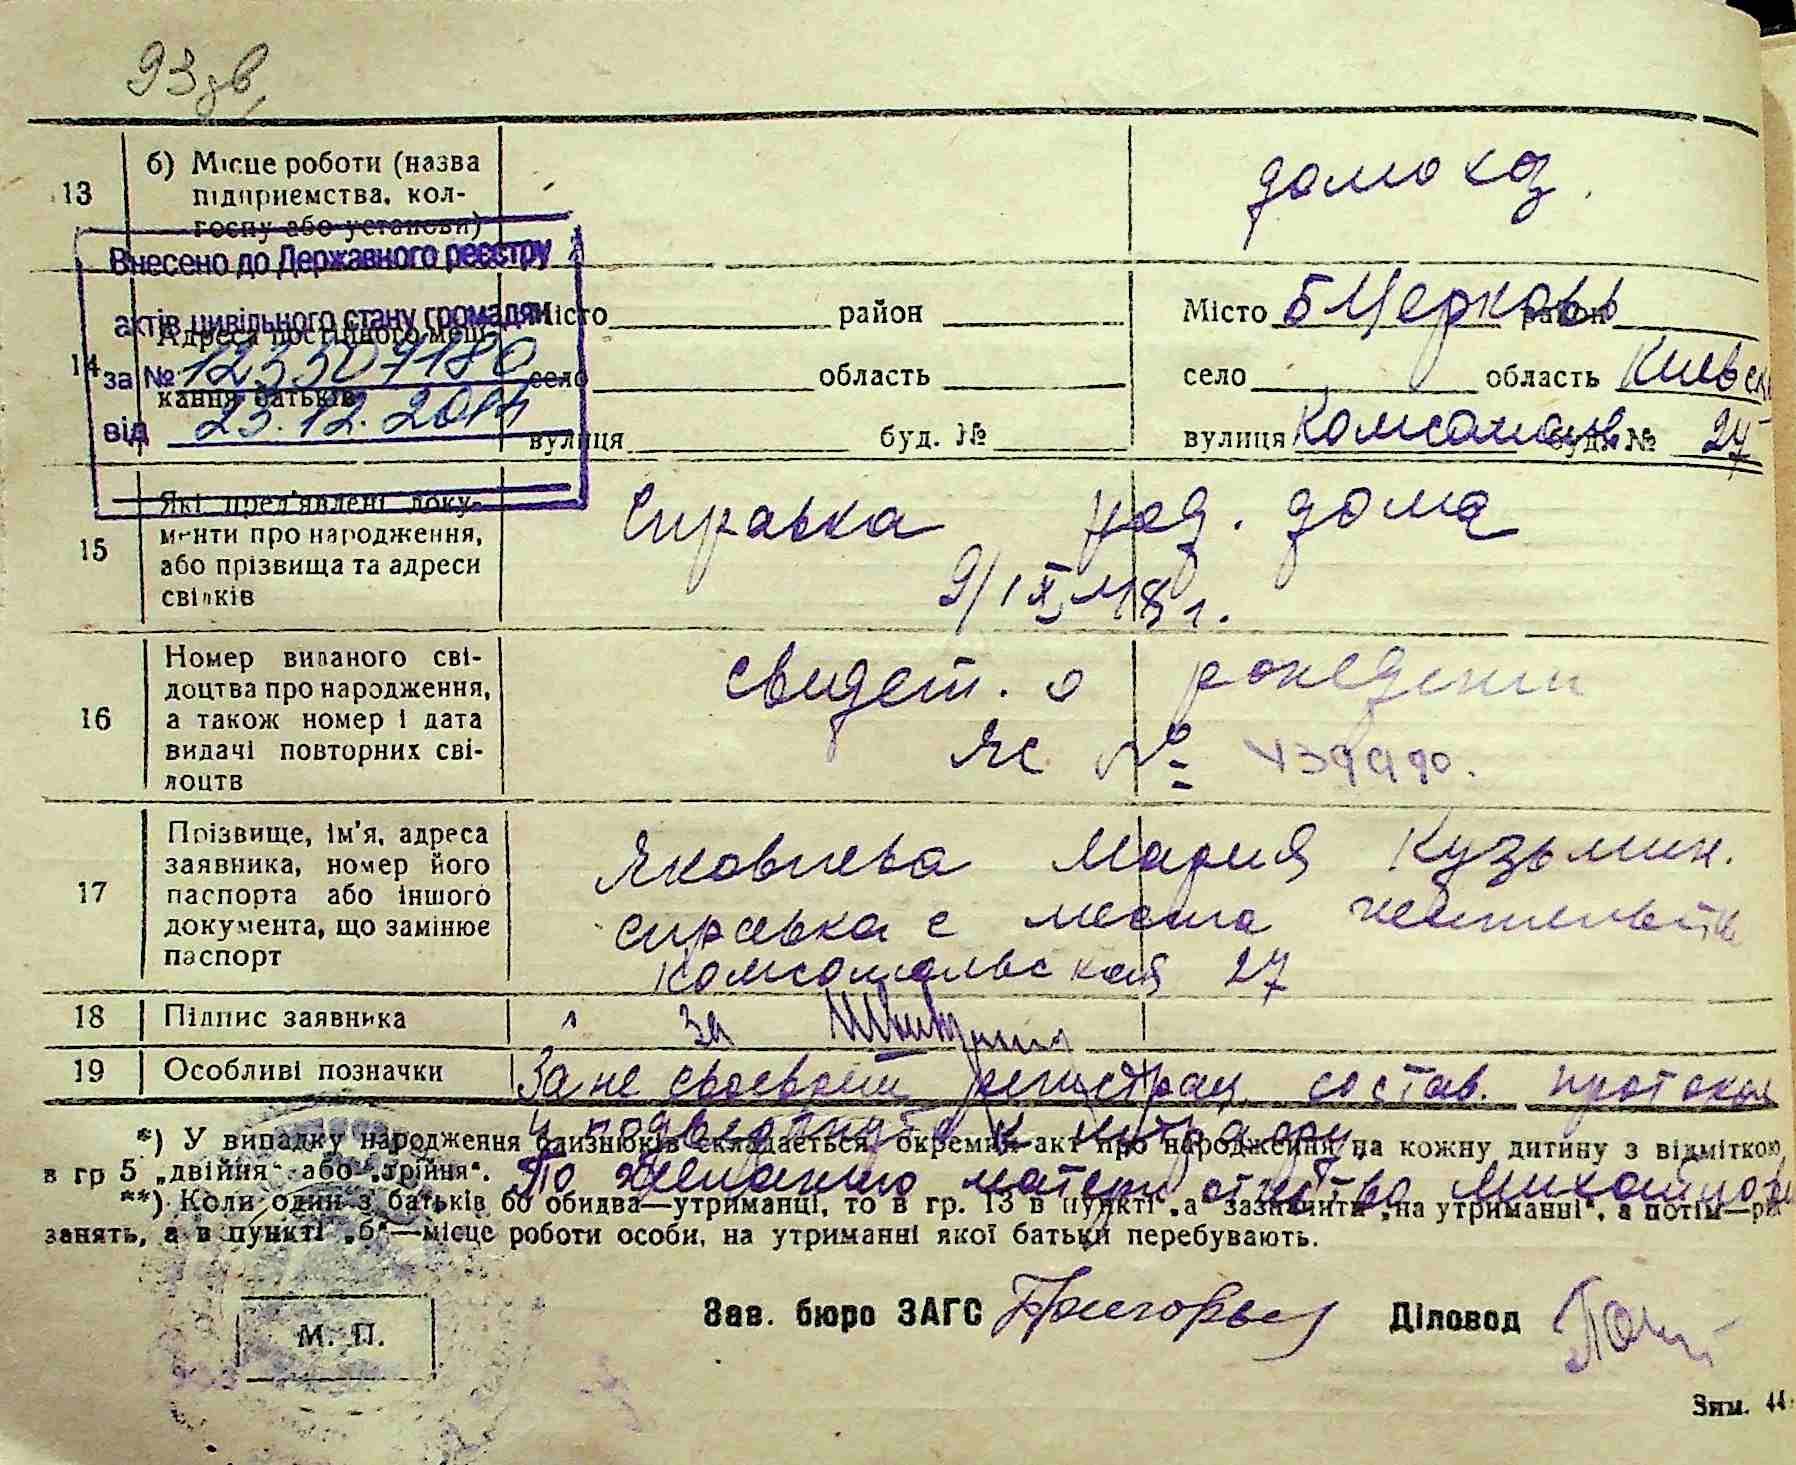 93 зв,
13
б) Місце роботи (назва
підприємства, кол-
госпу або установи)
домохоз.
Внесено до Державного реєстру
актів цивільного стану громадян
за №
від 23.12.2014
14
Адреса постійного меш-
кання батьків
Місто район
село область
вулиця буд. №
Місто Б Церковь район
село область Киевск
вулиця Комсомол буд. № 27
15
Які пред'явлені доку-
менти про народження,
або прізвища та адреси
свідків
Справка род. дома
16
Номер виданого сві-
доцтва про народження,
а також номер і дата
видачі повторних сві-
доцтв
свидет. о рождении
ЯС №
17
Прізвище, ім'я, адреса
заявника, номер його
паспорта або іншого
документа, що замінює
паспорт
Яковлева Мария Кузьмин.
справка с места жительств
Комсомольская 27
18
Підпис заявника
за
19
Особливі позначки
За не своеврем регистрац. состав. протокол
и подвергнута к штрафу.
По желанию матери отчество
*) У випадку народження близнюків складається окремий акт про народження на кожну дитину з відміткою
в гр 5 „двійня" або „трійня".
**) Коли один з батьків бо обидва—утриманці, то в гр. 13 в пункті „а" зазначити „на утриманні", а потім—рід
занять, а в пункті „б"—місце роботи особи, на утриманні якої батьки перебувають.
М. П.
Зав. бюро ЗАГС Діловод
Зим. 44